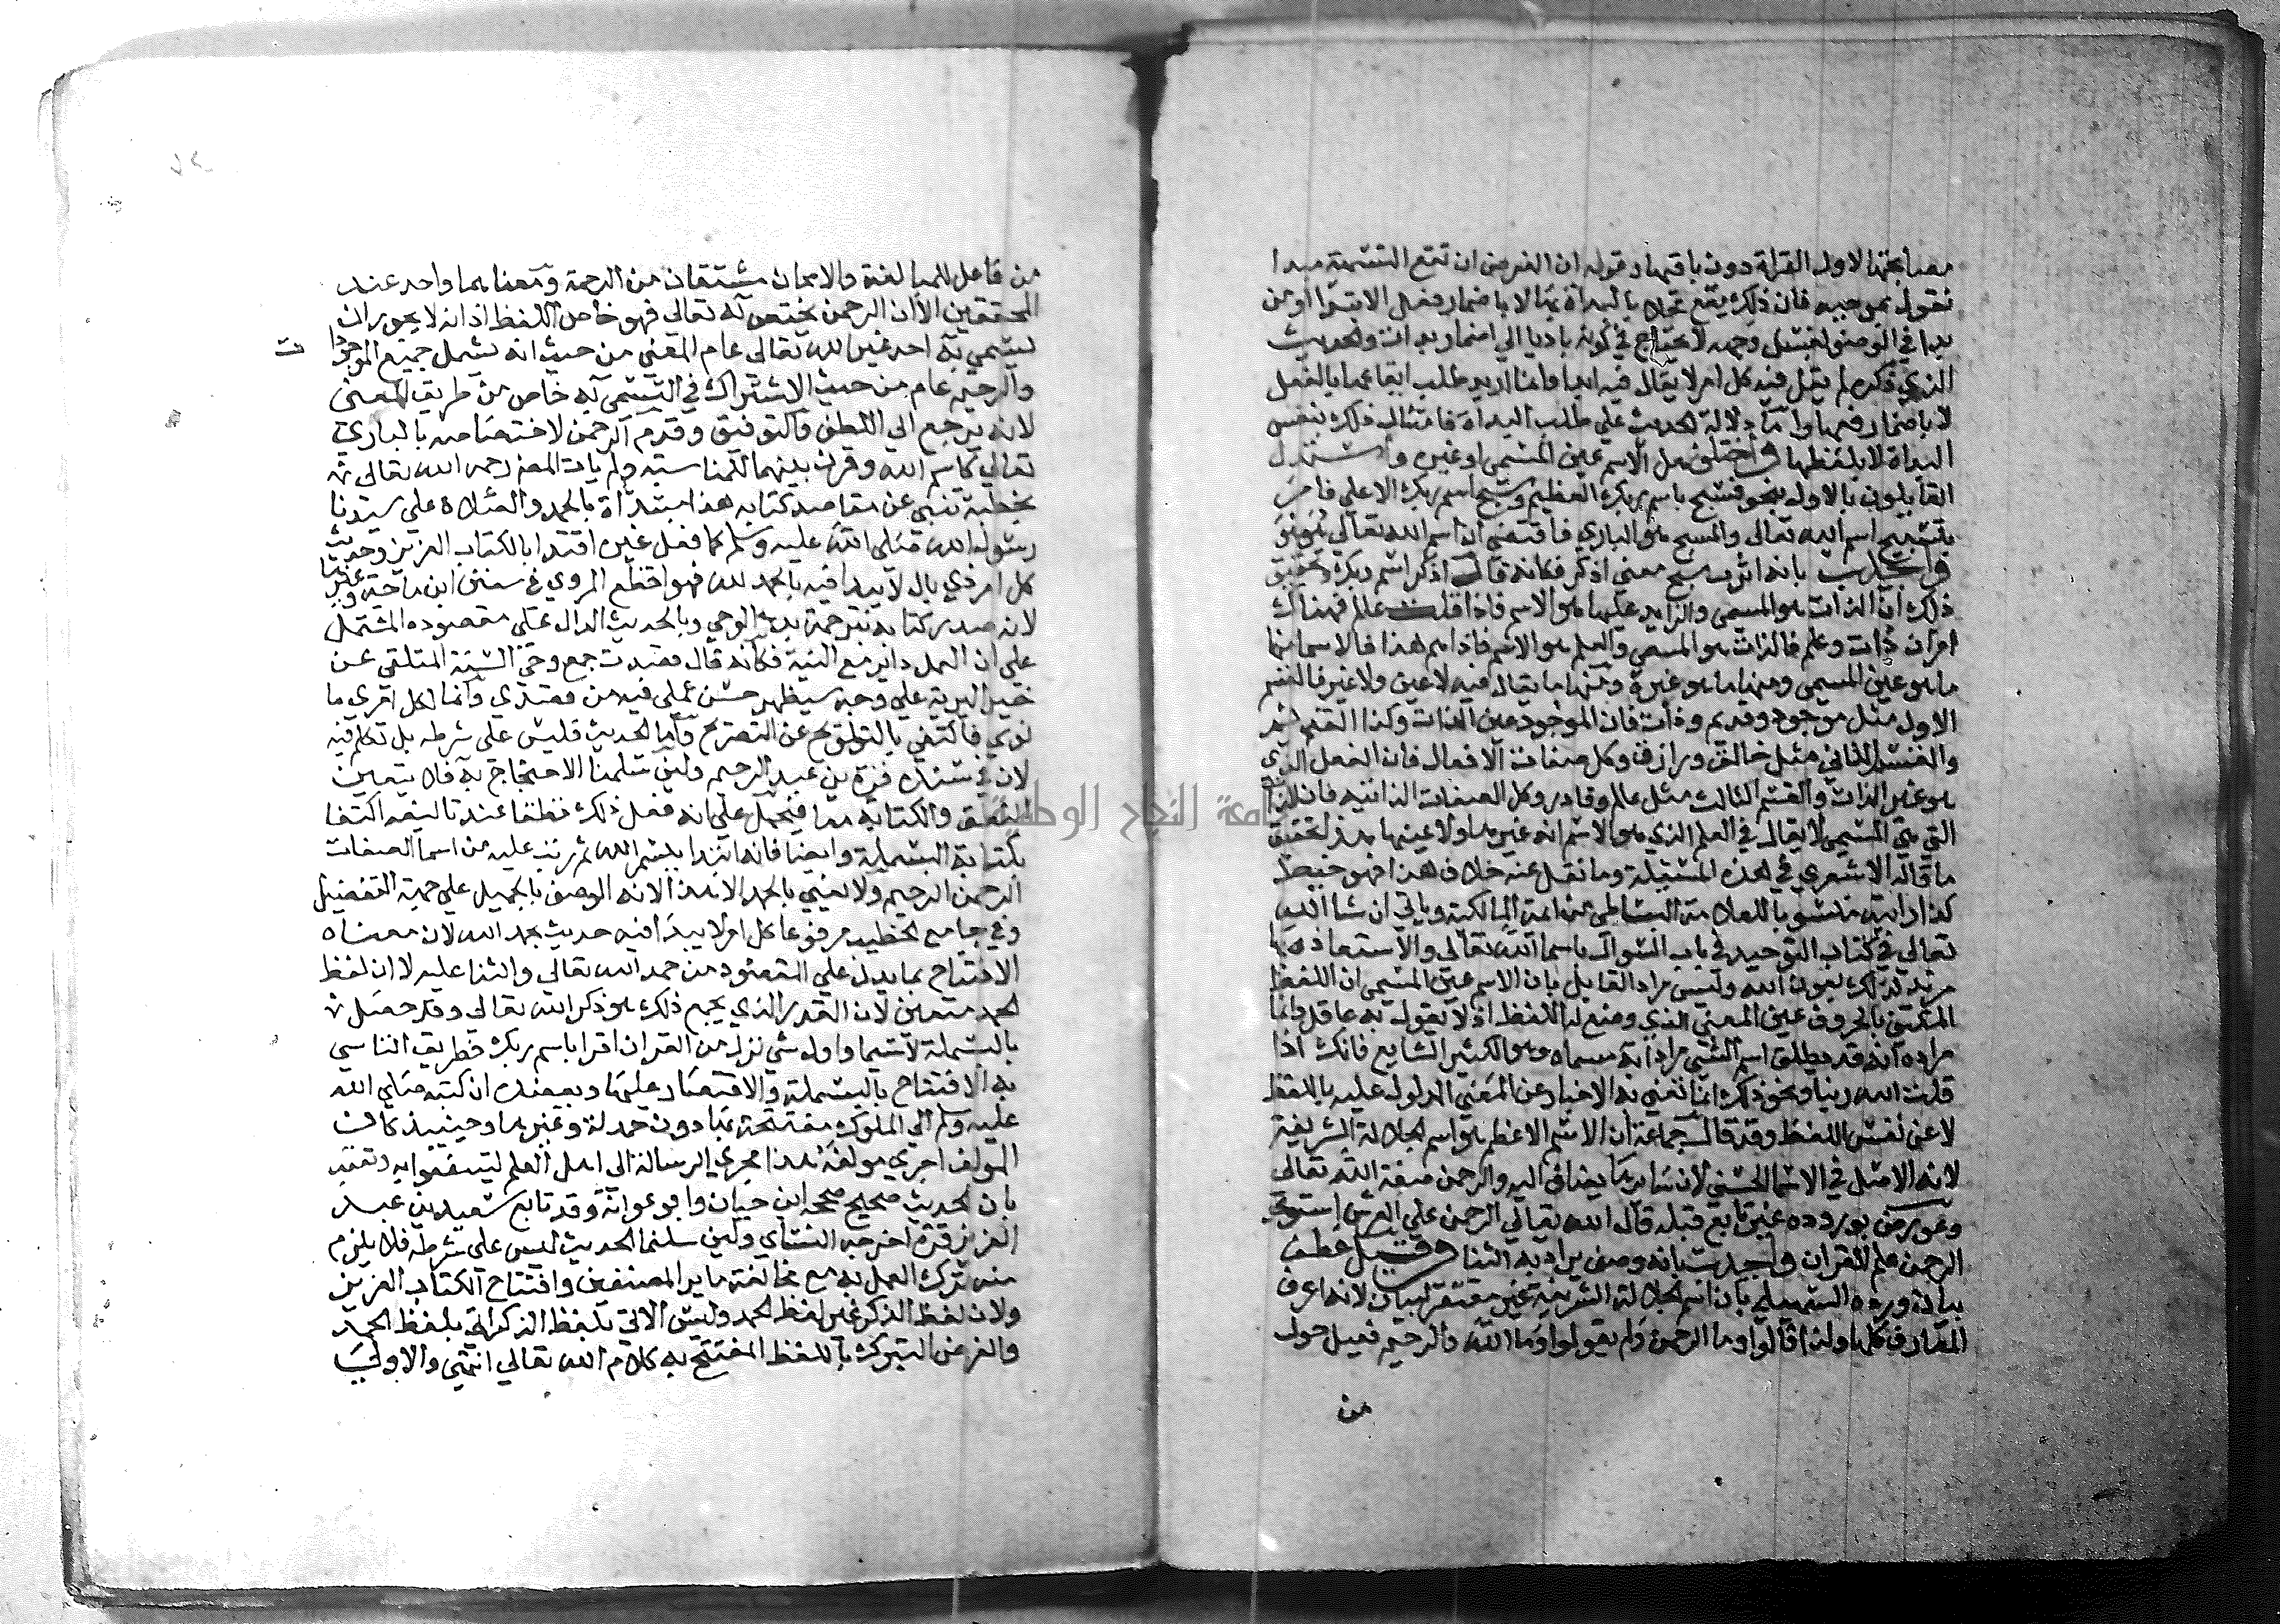 مصاحبتها لاول القراة دون باقيها وقوله ان الغرض ان تقع التسمية مبدا
نقول بموجبه فان ذلك يقع فعلا بالبداة بها لا باضمار فعل الابتدا ومن
بدا في الوضو بغسل وجهه لا يحتاج في كونه باديا الي اضمار بدات والحديث
الذي ذكره لم يقل فيه كل امر لا يقال فيه ابدا وانما اريد طلب ايقاعها بالفعل
لا باضمار فعلها واما دلالة الحديث علي طلب البداة فامتثال ذلك بنفس
البداة لا بلفظها واختلف هل الاسم عين المسمي او غيره واستدل
القايلون بالاول بنحو فسبح باسم ربك العظيم وسبح اسم ربك الاعلي فامر
بتسبيح اسم الله تعالى والمسبح هو الباري فاقتضي ان اسم الله تعالي هو هو
واجيب بانه اشرب سبح معني اذكر فكانه قال اذكر اسم ربك وتحقيق
ذلك ان الذات هو المسمي والزايد عليها هو الاسم فاذا قلت عالم فهناك
امران ذات وعلم فالذات هو المسمي والعلم هو الاسم فاذا فهم هذا فالاسما منها
ما هو عين المسمي ومنها ما هو غيره ومنها ما يقال فيه لا عين ولا غير فالقسم
الاول مثل موجود وقديم وذات فان الموجود عين الذات وكذا القديم
والقسم الثاني مثل خالق ورازق وكل صفات الافعال فان الفعل الذي
هو غير الذات والقسم الثالث مثل عالم وقادر وكل الصفات الذاتية فان الذات
التي هي المسمي لا يقال في العلم الذي هو الاسم انه غيرها ولا عينها هذا تحقيق
ما قاله الاشعري في هذه المسئلة وما نقل عنه خلاف هذا فهو خبط
كذا رايته منسوبا للعلامة البساطي من ايمة المالكية وياتي ان شا الله
تعالي في كتاب التوحيد في باب السوال باسما الله تعالى والاستعاذة بها
مزيد لذلك بعون الله وليس مراد القايل بان الاسم عين المسمي ان اللفظ
المكون بالحروف عين المعني الذي وضع له اللفظ اذ لا يقول به عاقل وانما
مراده انه قد يطلق اسم الشي مرادا به مسماه وهو الكثير الشايع فانك اذا
قلت الله ربنا ونحو ذلك انما تعني به الاخبار عن المعني المدلول عليه باللفظ
لا عن نفس اللفظ وقد قال جماعة ان الاسم الاعظم هو اسم الجلالة الشريفة
لانه الاصل في الاسما الحسني لان سايرها يضاف اليه والرحمن صفة الله تعالى
وعورض بوروده غير تابع قبله قال الله تعالي الرحمن علي العرش استوي
الرحمن علم القران واجيب بانه وصف يراد به الثنا وقيل عطف
بيان ورده السهيلي بان اسم الجلالة الشريفة غير مفتقر لبيان لانه اعرف
المعارف كلها ولذا قالوا وما الرحمن ولم يقولوا وما الله والرحيم فعيل حول
من
من فاعل للمبالغة والاسمان مشتقان من الرحمة ومعناهما واحد عند
المحققين الا ان الرحمن يختص به تعالى فهو خاص اللفظ اذ انه لا يجوز ان
يسمي به احد غير الله تعالى عام المعني من حيث انه يشمل جميع الموجودات
والرحيم عام من حيث الاشتراك في التسمي به خاص من طريق المعني
لانه يرجع الي اللطف والتوفيق وقدم الرحمن لاختصاصه بالباري
تعالي كاسم الله وقرن بينهما للمناسبة ولم يات المصنف رحمه الله تعالى
بخطبة تنبي عن مقاصد كتابه هذا مبتداة بالحمد والصلاة علي سيدنا
رسول الله صلى الله عليه وسلم كما فعل غيره اقتدا بالكتاب العزيز وحديث
كل امر ذي بال لا يبدا فيه بالحمد لله فهو اقطع المروي في سنن ابن ماجة وغيرها
لانه صدر كتابه بترجمة بدء الوحي وبالحديث الدال على مقصوده المشتمل
علي ان العمل داير مع النية فكانه قال قصدت جمع وحي السنة المتلقي عن
خير البرية علي وجه سيظهر حسن عملي فيه من قصدي وانما لكل امري ما
نوي فاكتفي بالتلويح عن التصريح واما الحديث فليس علي شرطه بل تكلم فيه
لان في سنده قرة بن عبد الرحيم ولين سلمنا الاحتجاج به فلا يتعين
النطق والكتابة معا فيحمل علي انه فعل ذلك نطقا عند تاليفه اكتفا
بكتابة البسملة وايضا فانه ابتدا ببسم الله ثم رتب عليه من اسما الصفات
الرحمن الرحيم ولا يعني بالحمد الا هذا لانه الوصف بالجميل علي جهة التفضيل
وفي جامع الخطيب مرفوعا كل امر لا يبدا فيه حديث بحمد الله لان معناه
الافتتاح بما يدل علي المقصود من حمد الله تعالي والثنا عليه لا ان لفظ
الحمد متعين لان القدر الذي يجمع ذلك هو ذكر الله تعالى وقد حصل
بالبسملة لاسيما واول شي نزل من القران اقرا باسم ربك فطريق التاسي
به الافتتاح بالبسملة والاقتصار عليها ويعضده ان كتبه صلى الله
عليه وسلم الي الملوك مفتتحة بها دون حمدلة وغيرها وحينيذ كان
المولف اجري مولفه هذا مجري الرسالة الى اهل العلم لينتفعوا به وتعقب
بان الحديث صحيح صححه ابن حبان وابو عوانة وقد تابع سعيد بن عبد
العزيز قرة اخرجه النسائي ولين سلمنا الحديث ليس علي شرطه فلا يلزم
منه ترك العمل به مع مخالفة ساير المصنفين وافتتاح الكتاب العزيز
ولان لفظ الذكر غير لفظ الحمد وليس الاتي بلفظ الذكر اتي بلفظ الحمد
والغرض التبرك باللفظ المفتتح به كلام الله تعالي انتهي والاولي
جامعة النجاح الوطنية